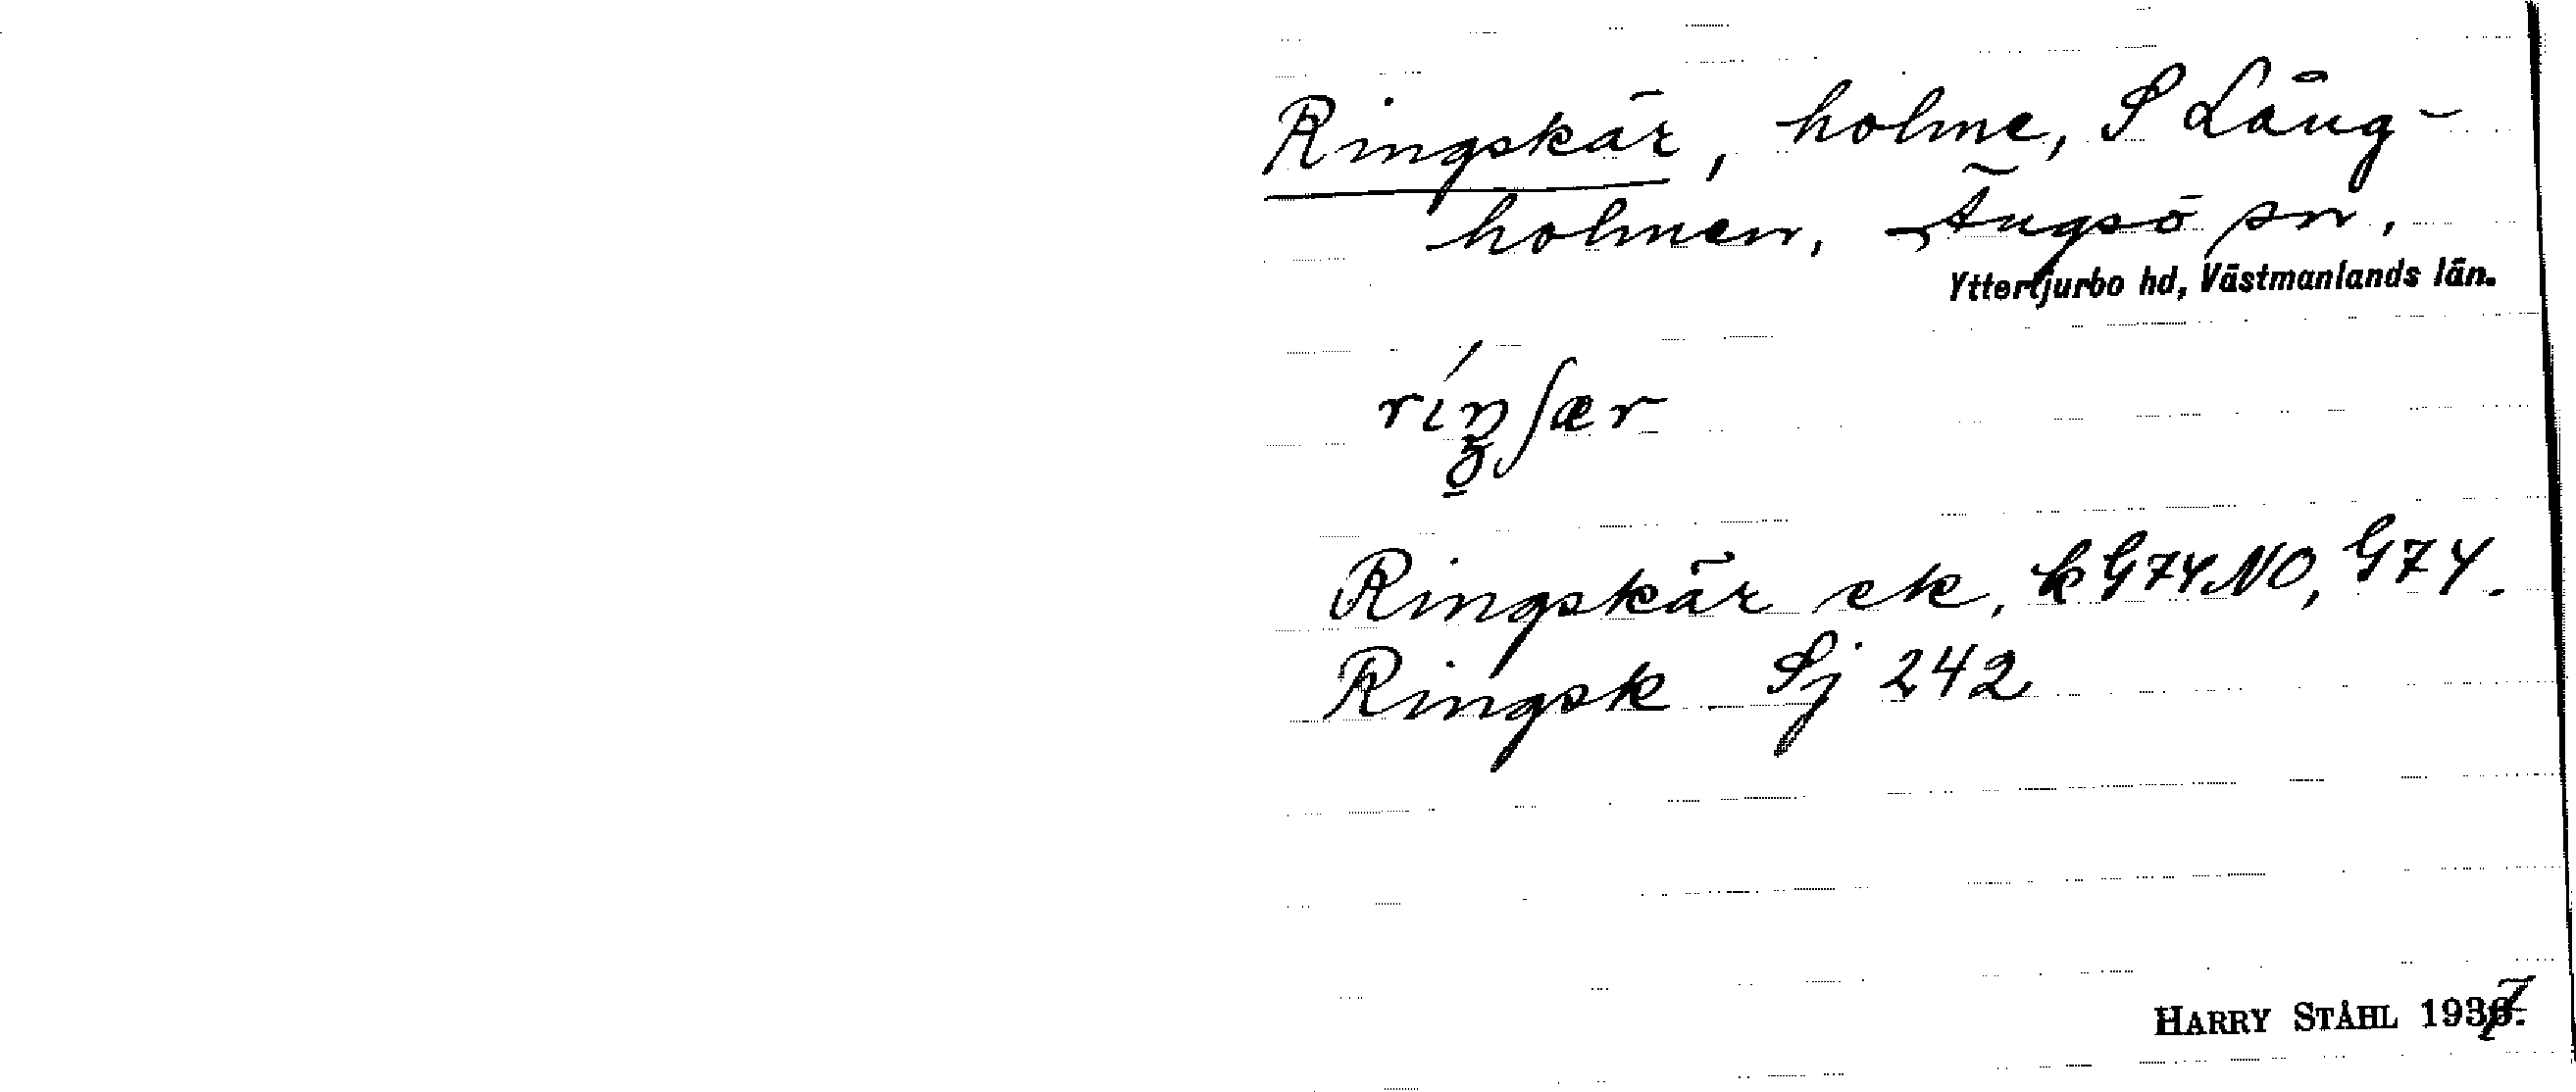 Ringskär, holme, S Lång-
holmen, Ängsö sn.
Yttertjurbo hd, Västmanlands län.
Ringskär ek, k G74NO, G74.
Ringsk Sj 242
HARRY STÅHL 1937.